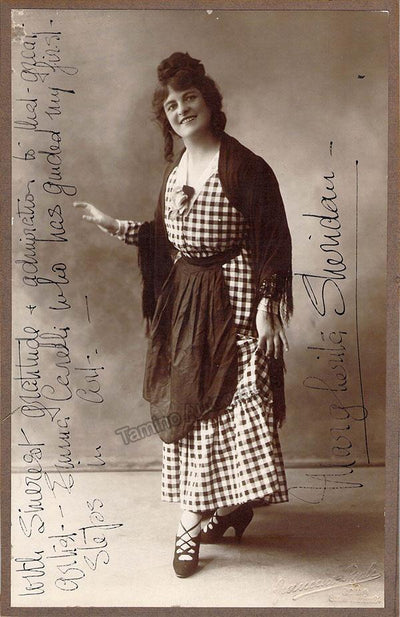 with Sincerest gratitude + admiration to that great
artist - Emma Carelli who has guided my first
Steps in art. -
Margherita Sheridan -
Tamino